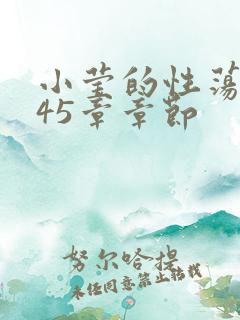 小莹的性荡
45章章节
努尔哈提
未经同意禁止转载